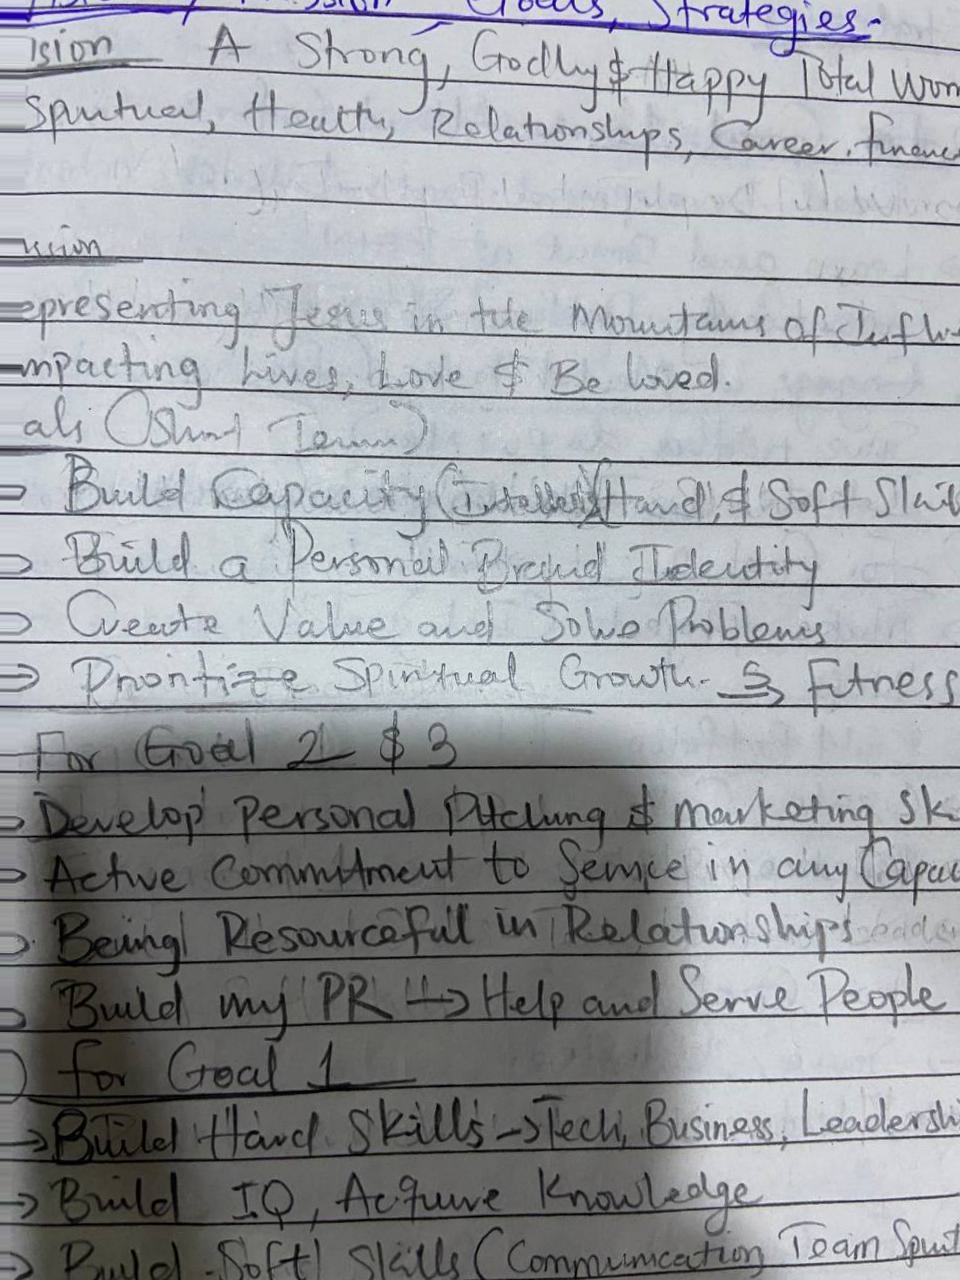 Goals, Strategies.
ision A Strong, Godly & Happy Total Wom
Spiritual, Health, Relationships, Career, financ
ission
epresenting Jesus in the Mountains of Influ
mpacting Lives, Love & Be loved.
als (Short Term)
⇒ Build Capacity Hard, & Soft Skil
⇒ Build a Personal Brand Identity
⇒ Create Value and Solve Problems
⇒ Prioritize Spiritual Growth. Fitness
For Goal 2 & 3
→ Develop personal Pitching & Marketing Sk
→ Active Commitment to Service in any Capac
→ Being Resourceful in Relationships
→ Build my PR → Help and Serve People
for Goal 1
→ Build Hard Skills → Tech, Business, Leadershi
→ Build IQ, Acquire Knowledge
→ Build Soft Skills (Communication, Team Spirit